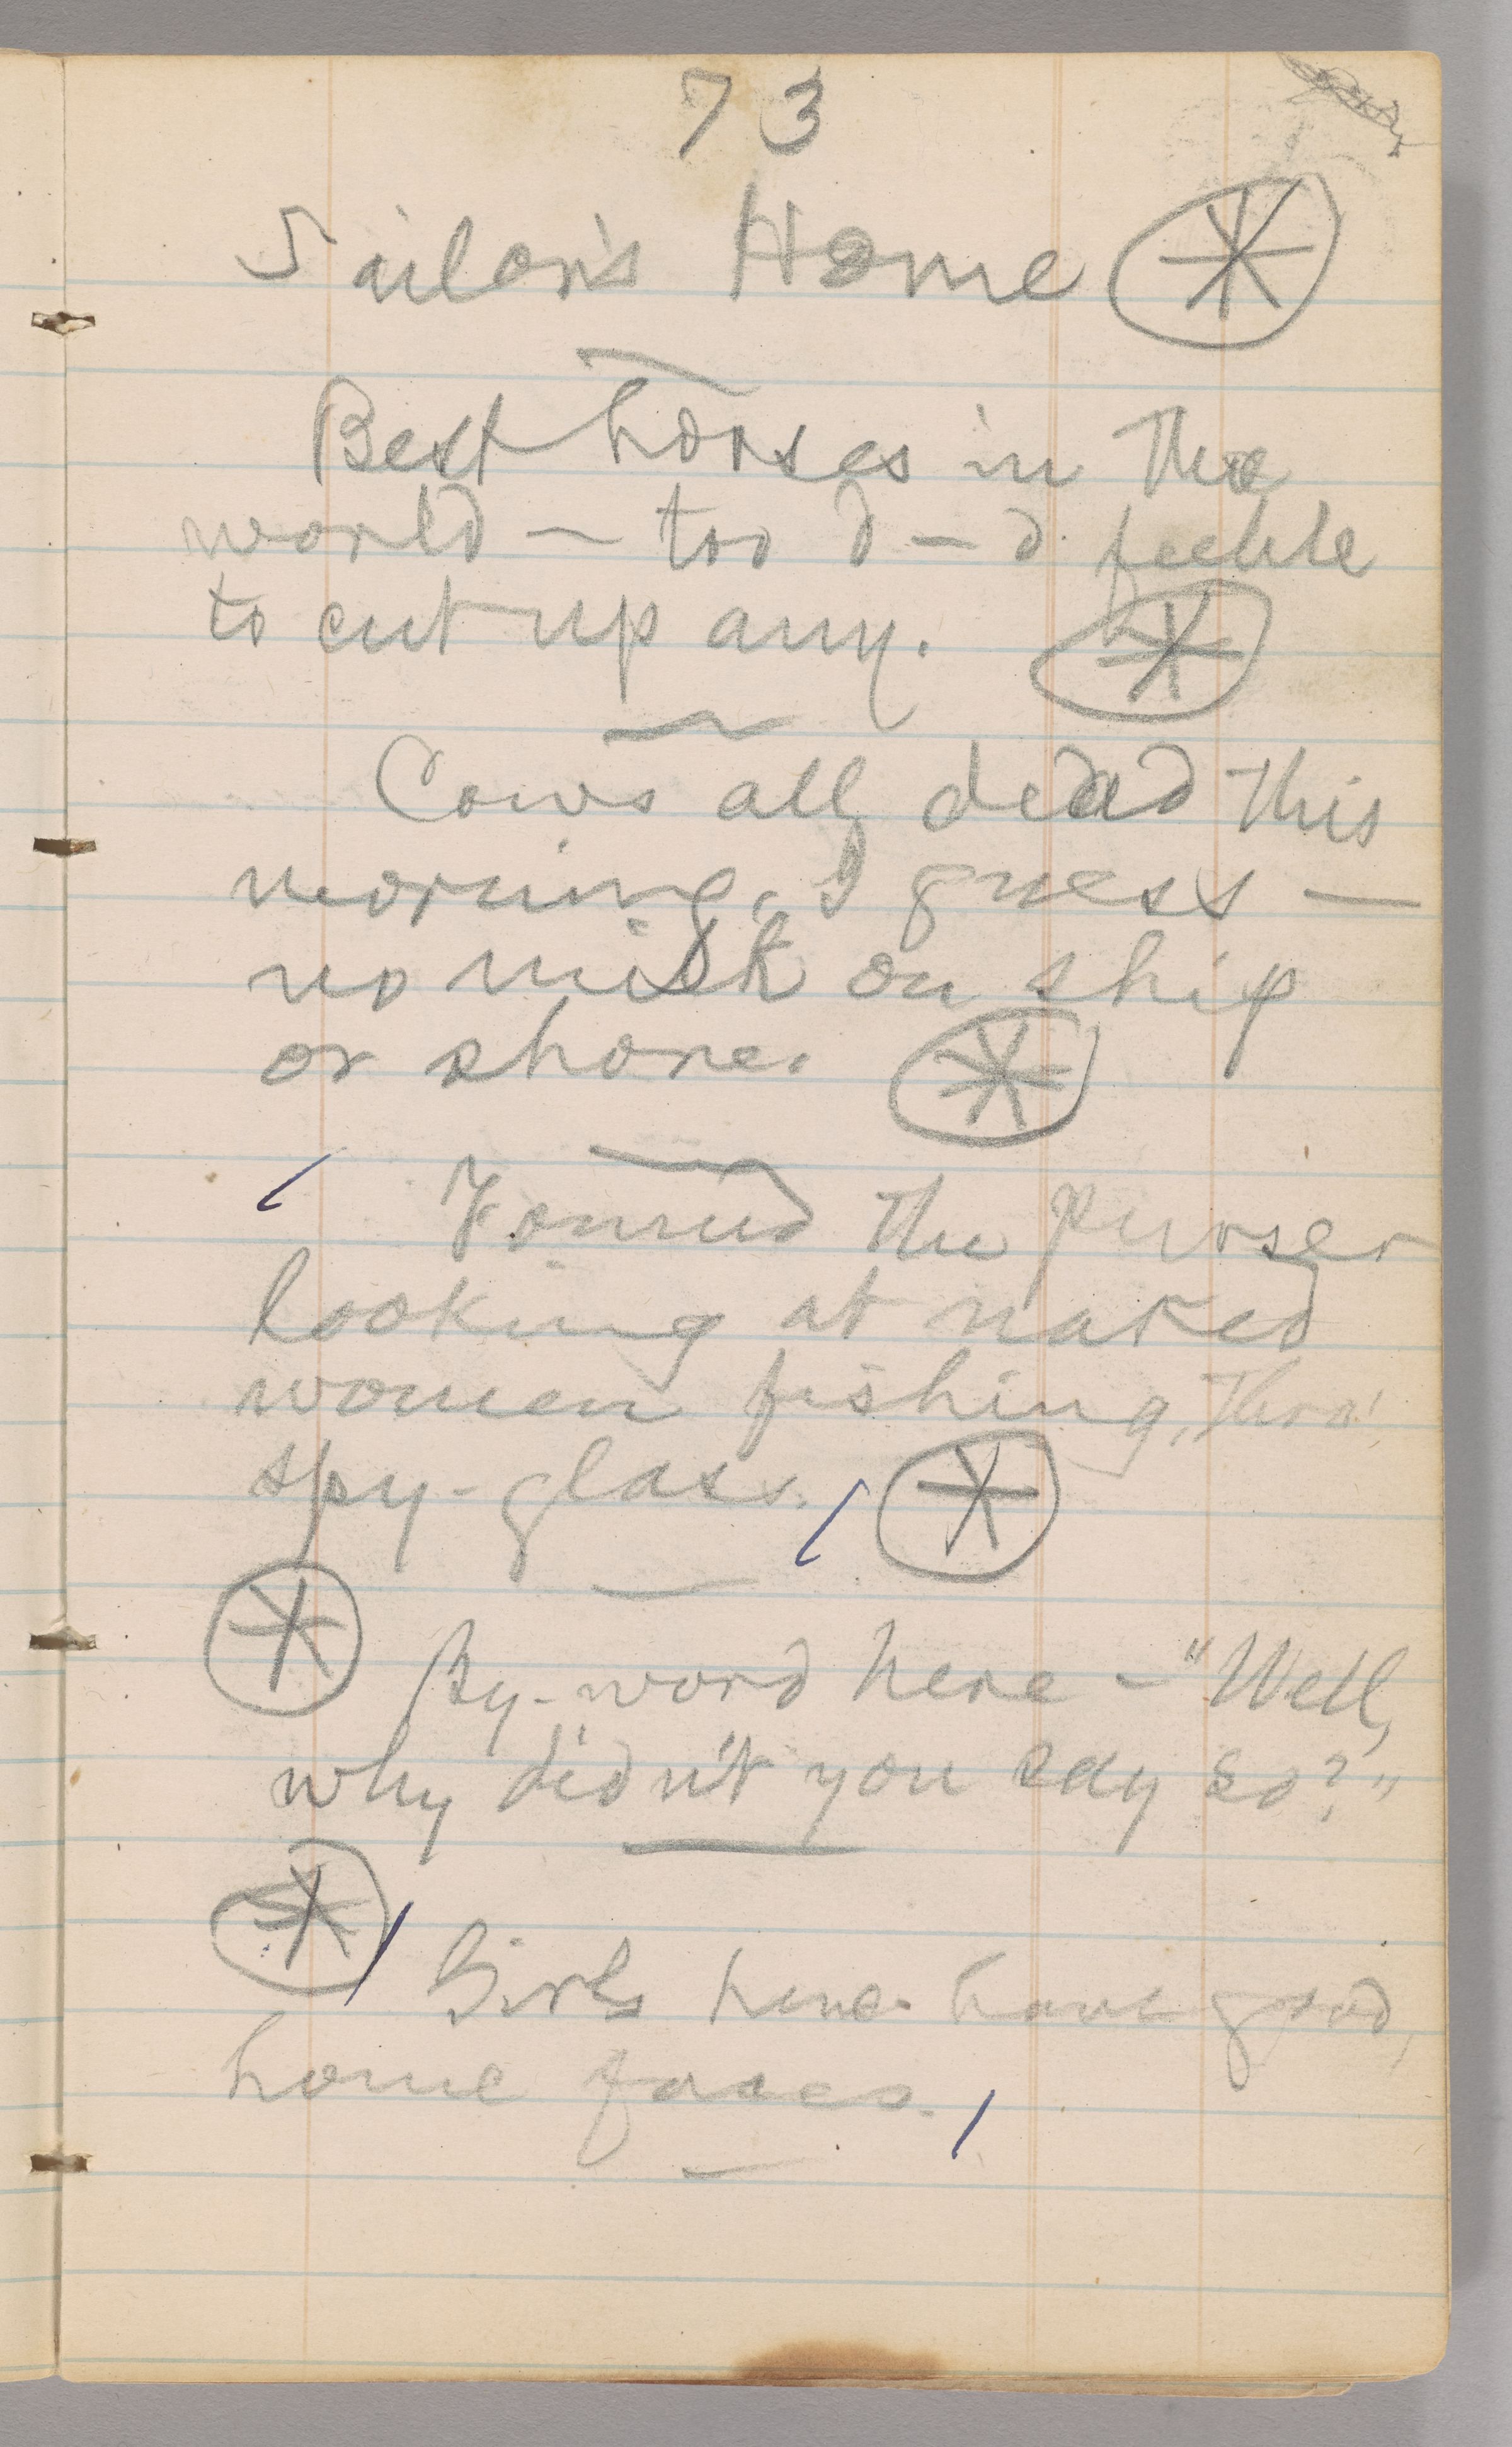 73
Sailor's Home
Best horses in the
world — too d—d feeble
to cut up any.
Cows all dead this
morning, I guess —
no milk on ship
or shore.
Found the purser
looking at naked
women fishing, thro'
spy-glass.
By-word here — "Well,
why didn't you say so?"
Girls here have good,
home faces.